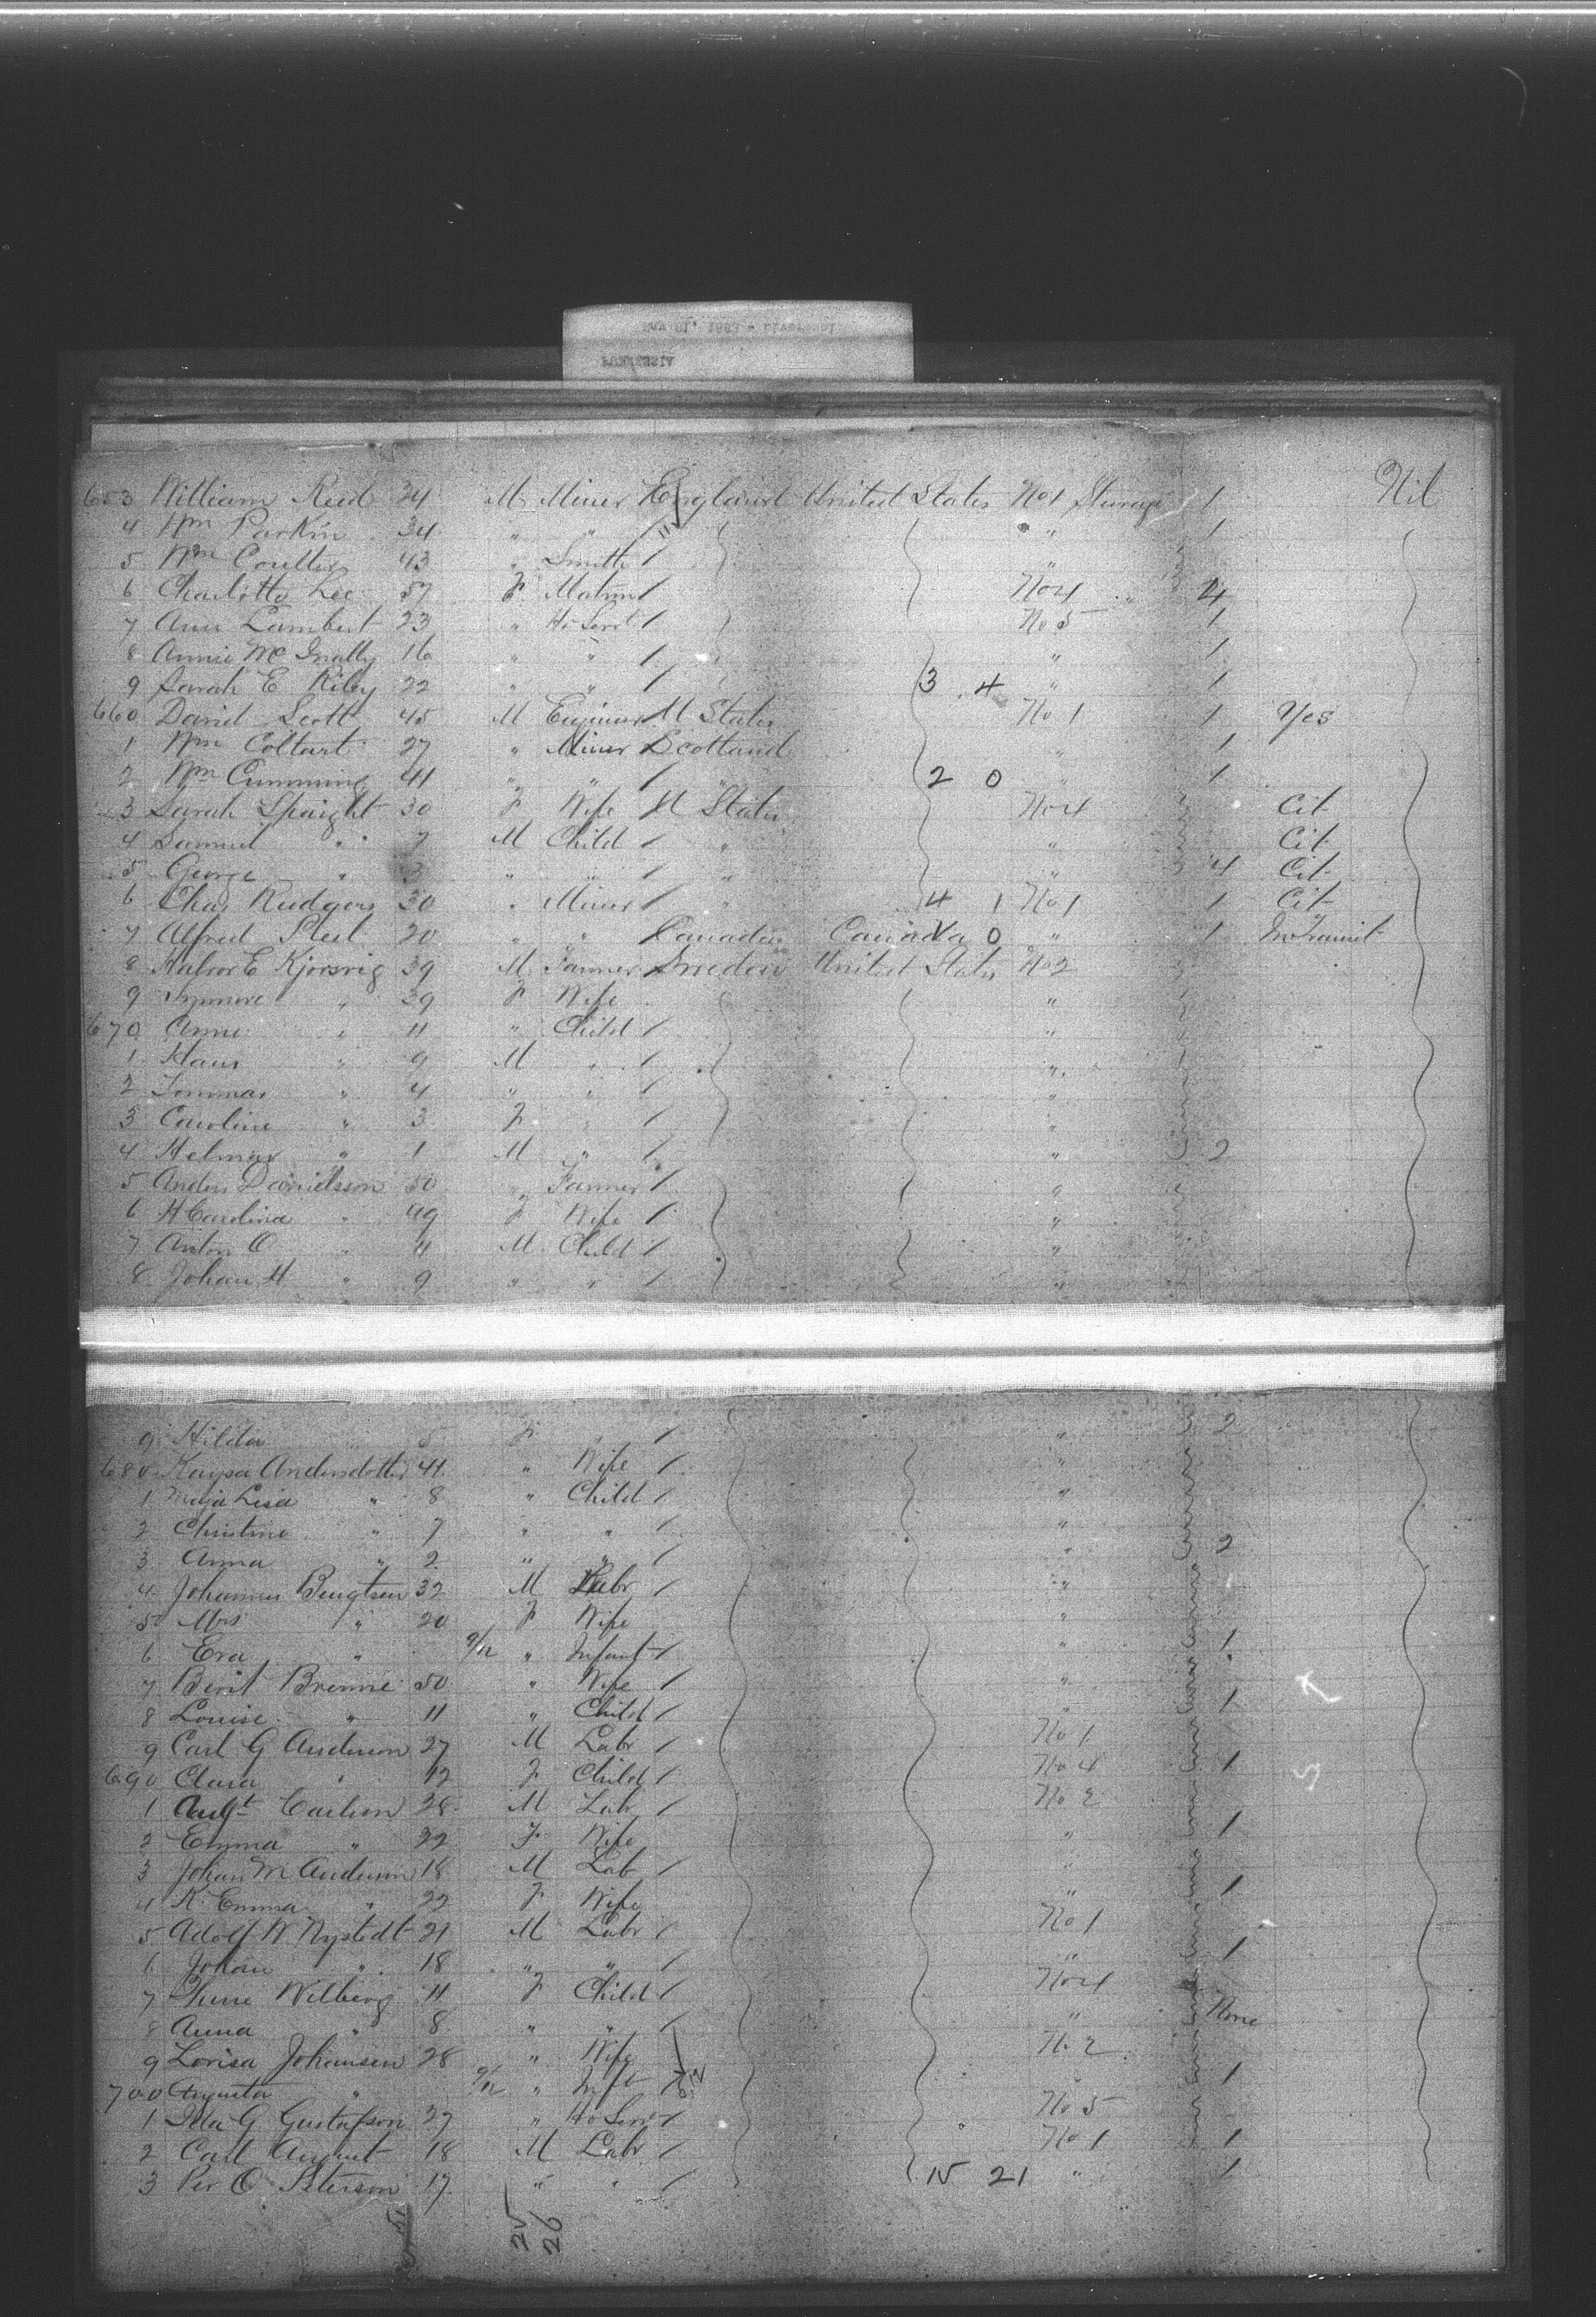 Nil
653 William Reed 34 M Miner England United States No 1 Steerage 1
4 Wm Parkin 34 " " " 1
5 Wm Coulter 43 " Smith / "
6 Charlotte Lee 57 F Matron / No 4 " 4
7 Ann Lambert 23 " Ho Servt / No 5 1
8 Annie Mc 16 " " / " 1
9 Sarah E Riley 22 " " / 3 4 " 1
660 David Scott 45 M Engineer U States No 1 1 Yes
1 Wm Coltart 27 " Miner Scotland " 1
2 Wm Cumming 41 " " / " 2 0 " 1
3 Sarah Spaight 30 F Wife U States No 4 Cit
4 Samuel " 7 M Child / " " Cit
5 George " 3 " " / " " 4 Cit
6 Chas Rudgers 30 " Miner / " 4 1 No 1 1 Cit
7 Alfred 20 " " Canadian Canada 0 " 1 In Transit
8 Halvor E Kjorsvig 39 M Farmer Sweden United States No 2
9 " 39 F Wife "
670 Anne " 11 " Child / "
1 Hans " 9 M " / "
2 Tommas " 4 " " / "
3 Caroline " 3 F " / "
4 Helmar " 1 M " / " 2
5 Anders Danielsson 50 " Farmer / "
6 H Carolina " 49 F Wife / "
7 Anton O " 11 M Child / "
8 Johan H " 9 " " / "
9 Hilda 5 F " / " 2
680 Kaysa Andersdotter 41 " Wife / "
1 Maja Lisa " 8 " Child / "
2 Christine " 7 " " / "
3 Anna " 2 " " / " 2
4 Johannes Bengtsen 32 M Labr / "
5 Mrs " 20 F Wife "
6 Eva " 9/12 " Infant / " 1
7 Berit Brenne 50 " Wife / "
8 Louise " 11 " Child / " 1
9 Carl G Anderson 27 M Labr / No 1
690 Clara " 12 F Child / No 4 1
1 Augt Carlson 28 M Labr / No 2
2 Emma " 22 F Wife " 1
3 Johan M Anderson 18 M Lab / "
4 K Emma " 22 F Wife " 1
5 Adolf W Nystedt 21 M Labr / No 1
6 Johan " 18 " " / " 1
7 Wilberg 11 F Child / No 4
8 Anna " 8 " " / " None
9 Lovisa Johansen 28 " Wife No 2
700 Augusta " 9/12 " Inft " 1
1 Ida G Gustafson 27 " Ho Servt / No 5
2 Carl August 18 M Labr / No 1 1
3 Per O Peterson 17 " " / 15 21 " 1
25
26